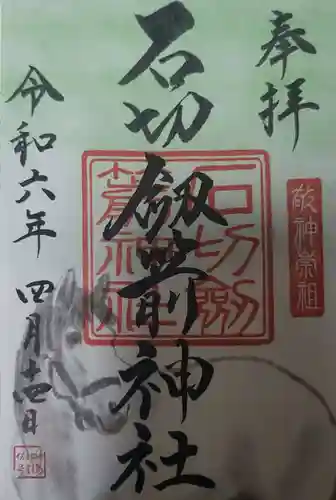 奉拝
石切劔箭神社
令和六年 四月十四日
敬神崇祖
石切劔箭神社